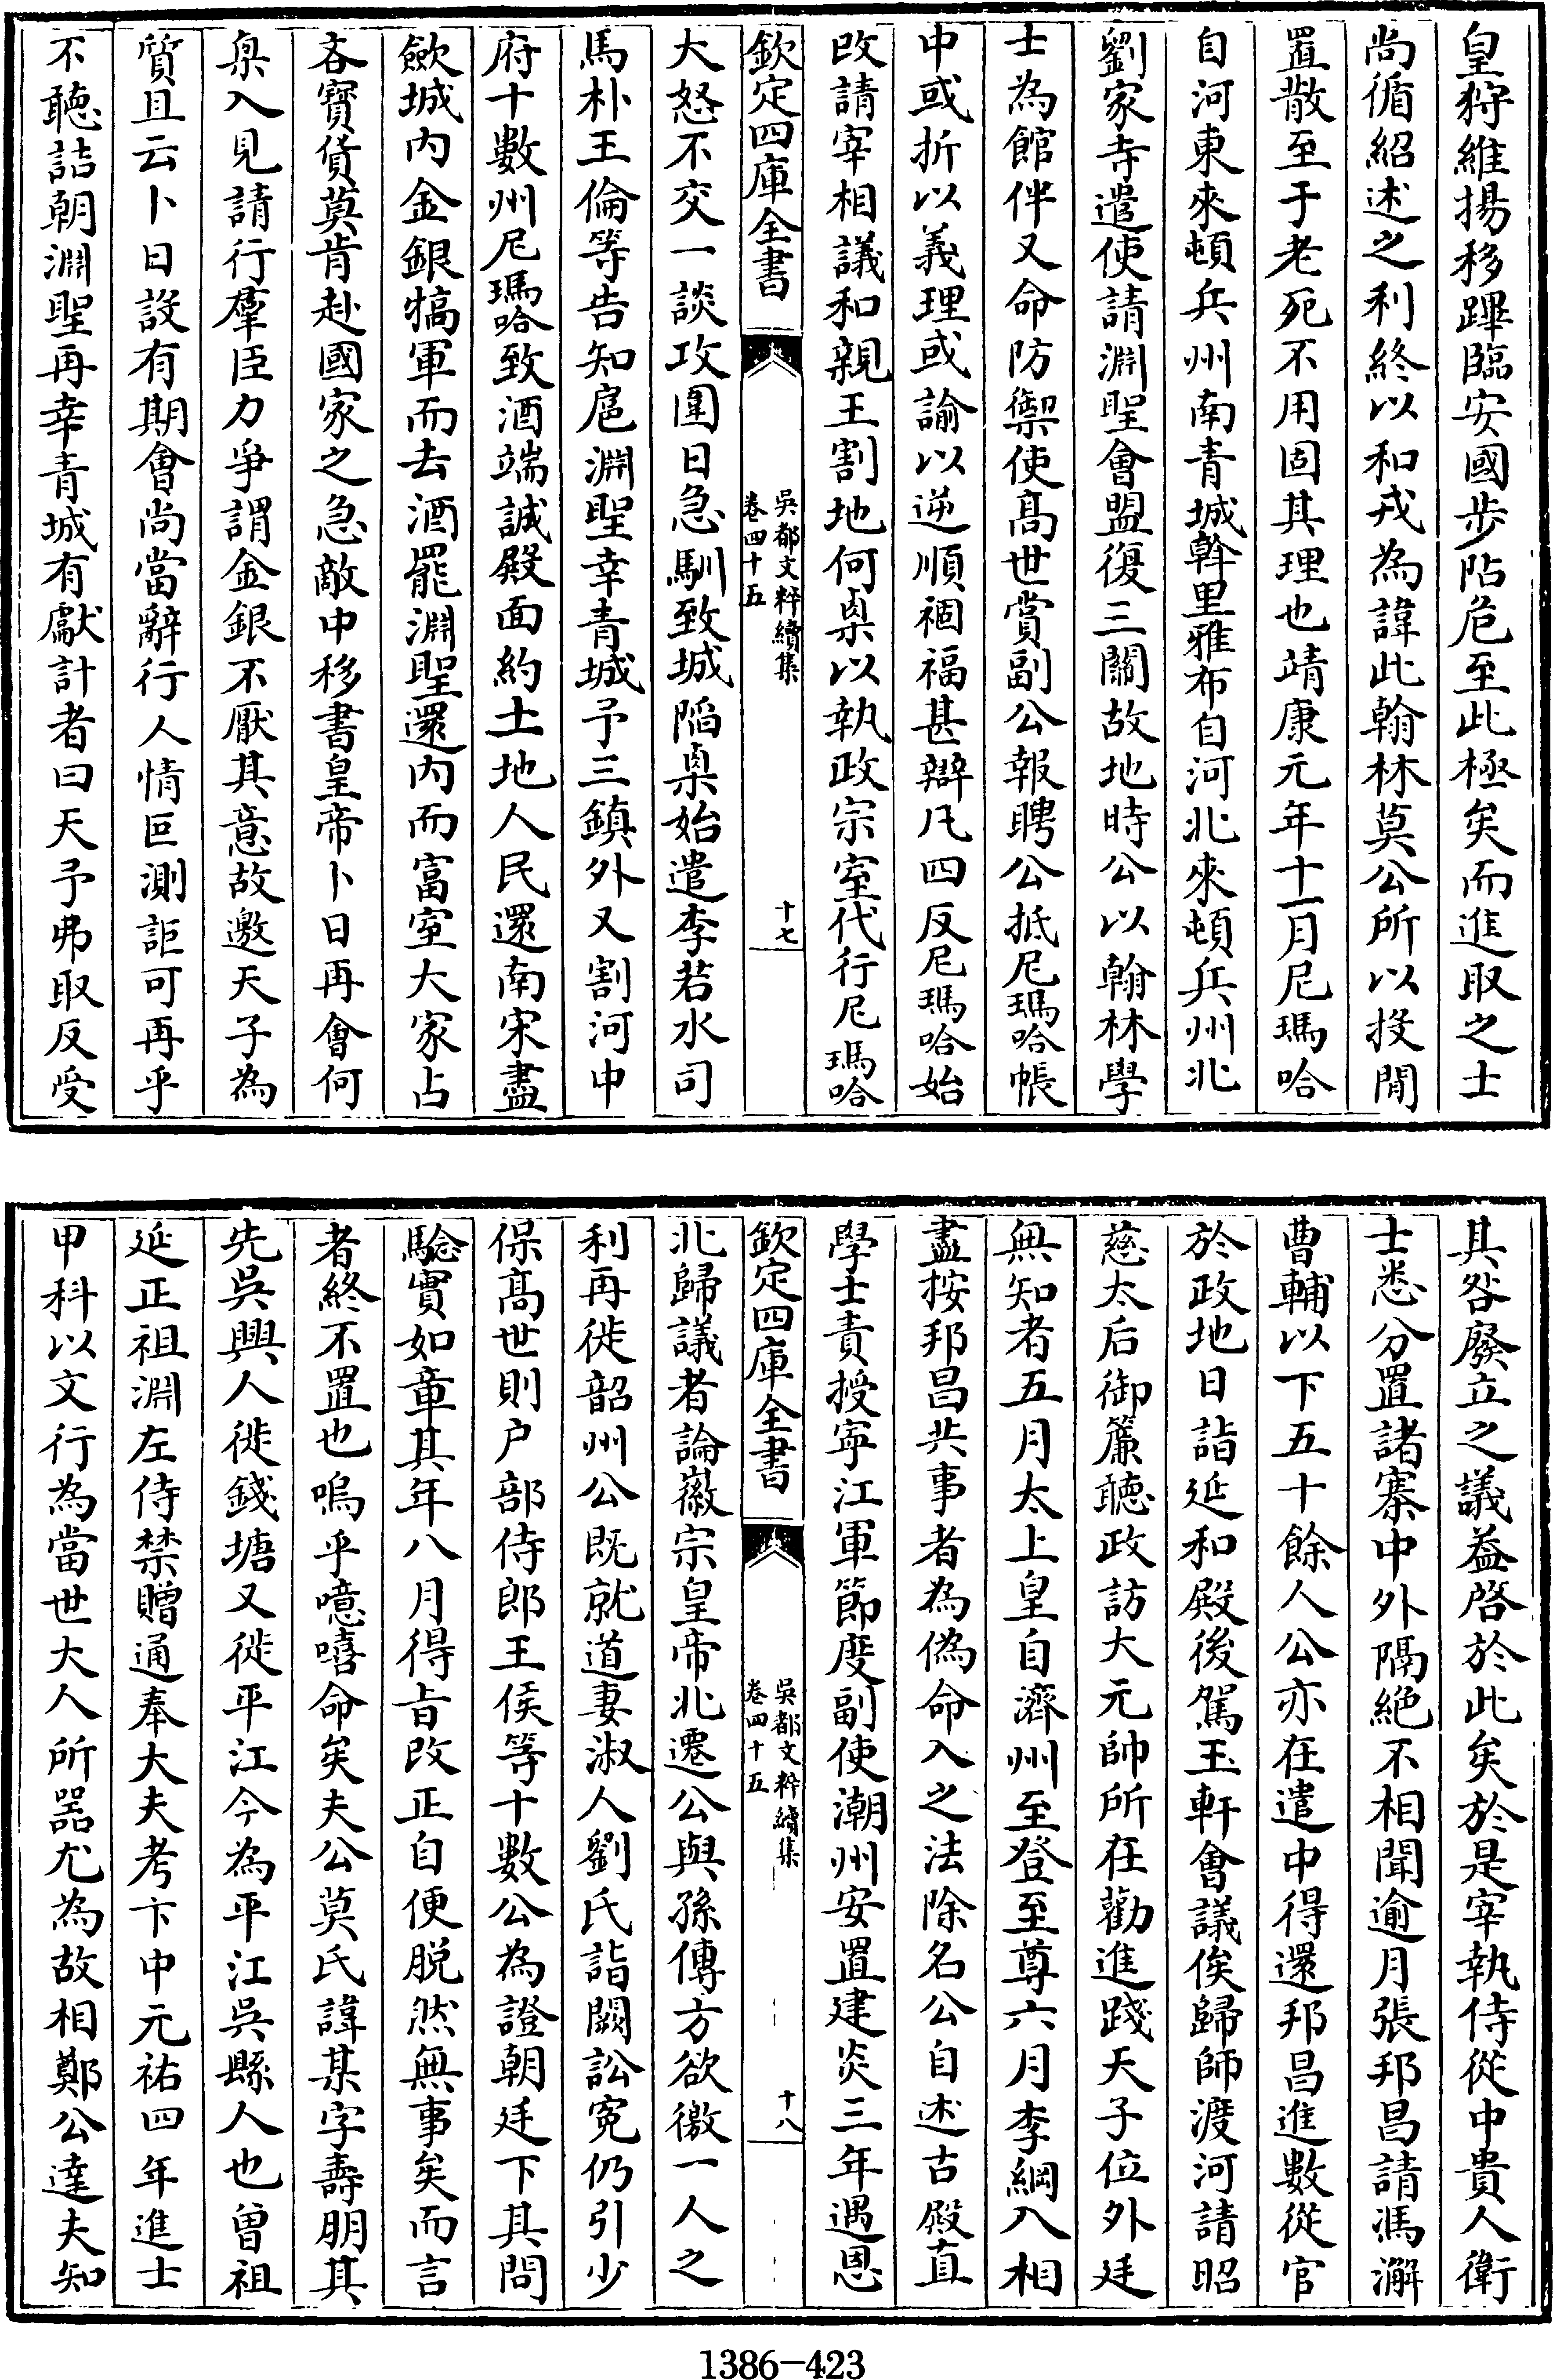 皇狩維揚移蹕臨安國步阽危至此極矣而進取之士
尚循紹述之利終以和戎為諱此翰林莫公所以投閒
置散至于老死不用固其理也靖康元年十一月尼瑪哈
自河東來頓兵州南青城斡里雅布自河北來頓兵州北
劉家寺遣使請淵聖會盟復三關故地時公以翰林學
士為館伴又命防禦使高世賞副公報聘公抵尼瑪哈帳
中或折以義理或諭以逆順禍福甚辯凡四反尼瑪哈始
改請宰相議和親王割地何㮚以執政宗室代行尼瑪哈
欽定四庫全書
吳都文粹續集
卷四十五
十七
大怒不交一談攻圍日急馴致城陷㮚始遣李若水司
馬朴王倫等告知扈淵聖幸青城予三鎮外又割河中
府十數州尼瑪哈致酒端誠殿面約土地人民還南宋盡
歛城内金銀犒軍而去酒罷淵聖還内而富室大家占
吝寳貨莫肯赴國家之急敵中移書皇帝卜日再會何
㮚入見請行羣臣力爭謂金銀不厭其意故邀天子為
質且云卜日設有期會尚當辭行人情叵測詎可再乎
不聽詰朝淵聖再幸青城有獻計者曰天予弗取反受
其咎廢立之議益啓於此矣於是宰執侍從中貴人衛
士悉分置諸寨中外隔絶不相聞逾月張邦昌請馮澥
曹輔以下五十餘人公亦在遣中得還邦昌進數從官
於政地日詣延和殿後駕玉軒會議俟歸師渡河請昭
慈太后御簾聽政訪大元帥所在勸進踐天子位外廷
無知者五月太上皇自濟州至登至尊六月李綱入相
盡按邦昌共事者為偽命入之法除名公自述古殿直
學士責授寜江軍節度副使潮州安置建炎三年遇恩
欽定四庫全書
吳都文粹續集
卷四十五
十八
北歸議者論徽宗皇帝北遷公與孫傳方欲徼一人之
利再徙韶州公既就道妻淑人劉氏詣闕訟寃仍引少
保高世則户部侍郎王俣等十數公為證朝廷下其問
驗實如章其年八月得㫖改正自便脱然無事矣而言
者終不置也嗚乎噫嘻命矣夫公莫氏諱某字壽朋其
先吳興人徙錢塘又徙平江今為平江吳縣人也曾祖
延正祖淵左侍禁贈通奉大夫考卞中元祐四年進士
甲科以文行為當世大人所噐尤為故相鄭公達夫知
1386-423